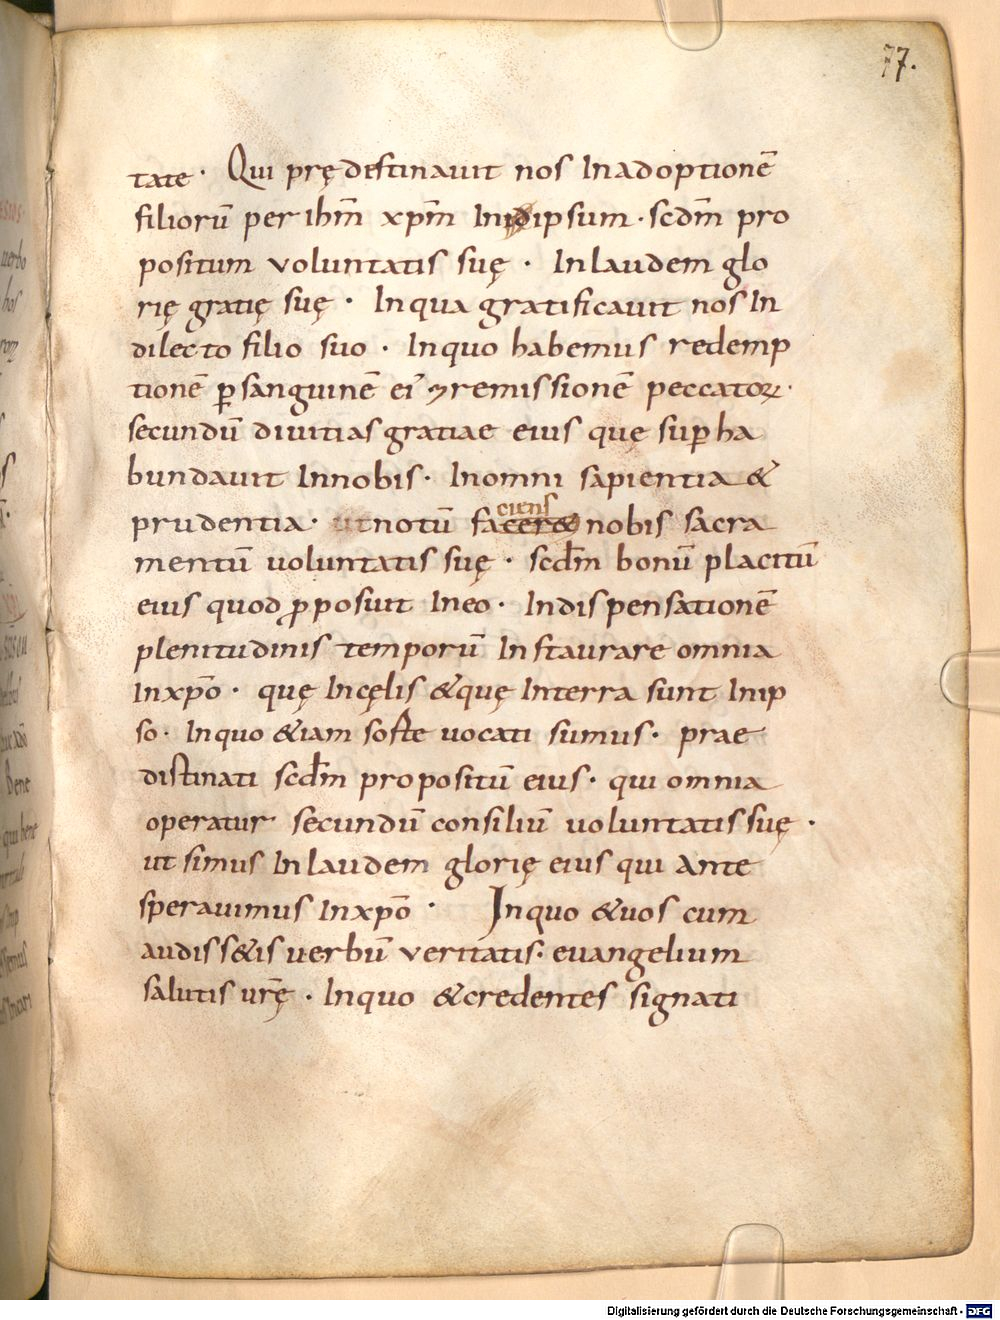 77.
tate · Qui prędestinauit nos Inadoptionē
filiorū per ihm̄ xpm̄ Inidipsum · scdm̄ pro
positum voluntatis suę · Inlaudem glo
rię gratię suę · Inqua gratificauit nos In
dilecto filio suo · Inquo habemus redemp
tionē ꝑsanguinē ei᾽ ⁊remissionē peccatoꝝ·
secundū diuitias gratiae eius quę suꝑha
bundauit Innobis · Inomni sapientia &
prudentia · ut notū facer& ciens nobis sacra
mentū uoluntatis suę · scdm̄ bonū placitū
eius quod ꝓposuit Ineo · Indispensationē
plenitudinis temporū Instaurare omnia
Inxpo̅ · quę Incęlis &quę Interra sunt Inip
so · Inquo &iam sorte uocati sumus · prae
distinati scdm̄ propositū eius · qui omnia
operatur secundū consiliū uoluntatis suę ·
ut simus Inlaudem glorię eius qui ante
sperauimus Inxpo̅ · Inquo &uos cum
audiss&is uerbū veritatis · euangelium
salutis ur̄ę · Inquo &credentes signati
Digitalisierung gefördert durch die Deutsche Forschungsgemeinschaft - DFG